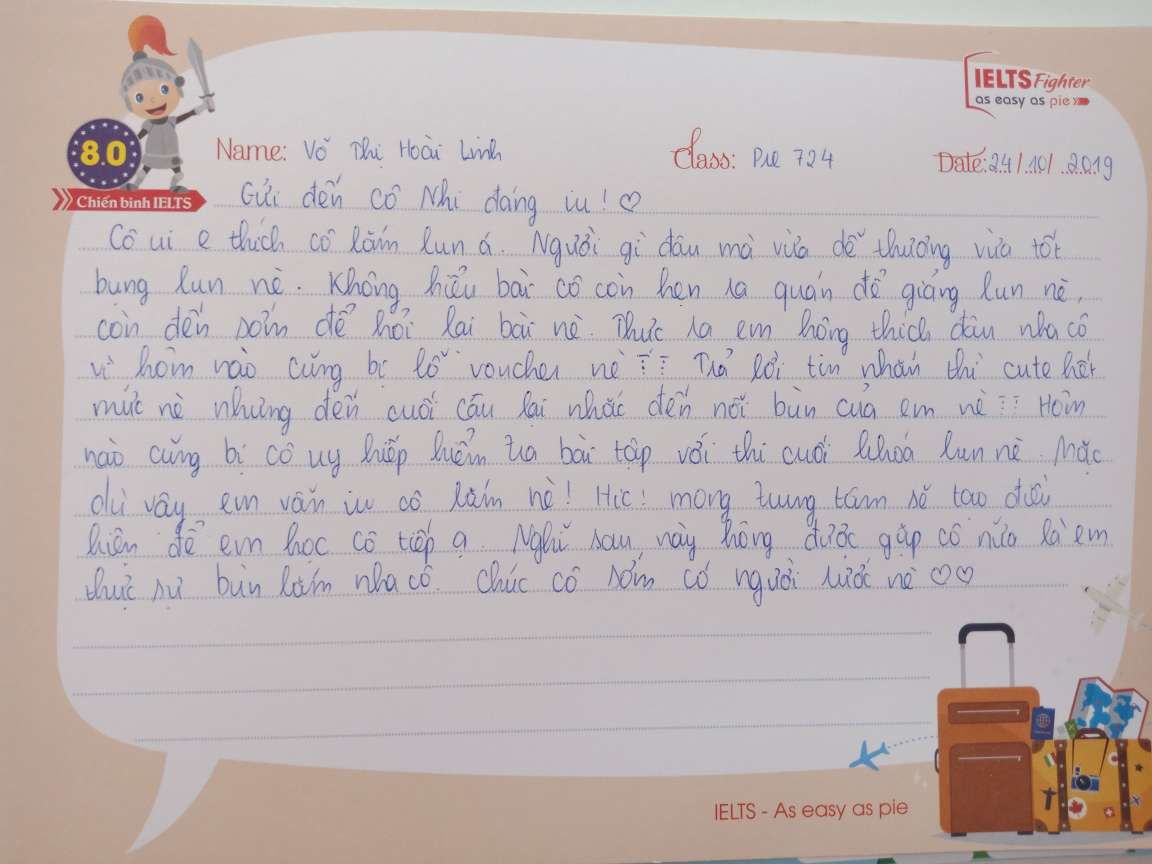 IELTS Fighter
as easy as pie
8.0
Chiến binh IELTS
Name: Võ Thị Hoài Linh Class: Pre 724 Date: 24/10/2019
Gửi đến cô Nhi đáng iu! ♡
Cô ui e thích cô lắm lun á. Người gì đâu mà vừa dễ thương vừa tốt
bụng lun nè. Không hiểu bài cô còn hẹn ra quán để giảng lun nè,
còn đến sớm để hỏi lại bài nè. Thực ra em hông thích đâu nha cô
vì hôm nào cũng bị lỗ voucher nè
Trả lời tin nhắn thì cute hết
mức nè nhưng đến cuối câu lại nhắc đến nỗi bùn của em nè Hôm
nào cũng bị cô uy hiếp kiểm tra bài tập với thi cuối khoá lun nè. Mặc
dù vậy em vẫn iu cô lắm nè! Hic! mong trung tâm sẽ tạo điều
kiện để em học cô tiếp ạ. Nghĩ sau này hông được gặp cô nữa là em
thực sự bùn lắm nha cô. Chúc cô sớm có người rước nè ♡♡
IELTS - As easy as pie